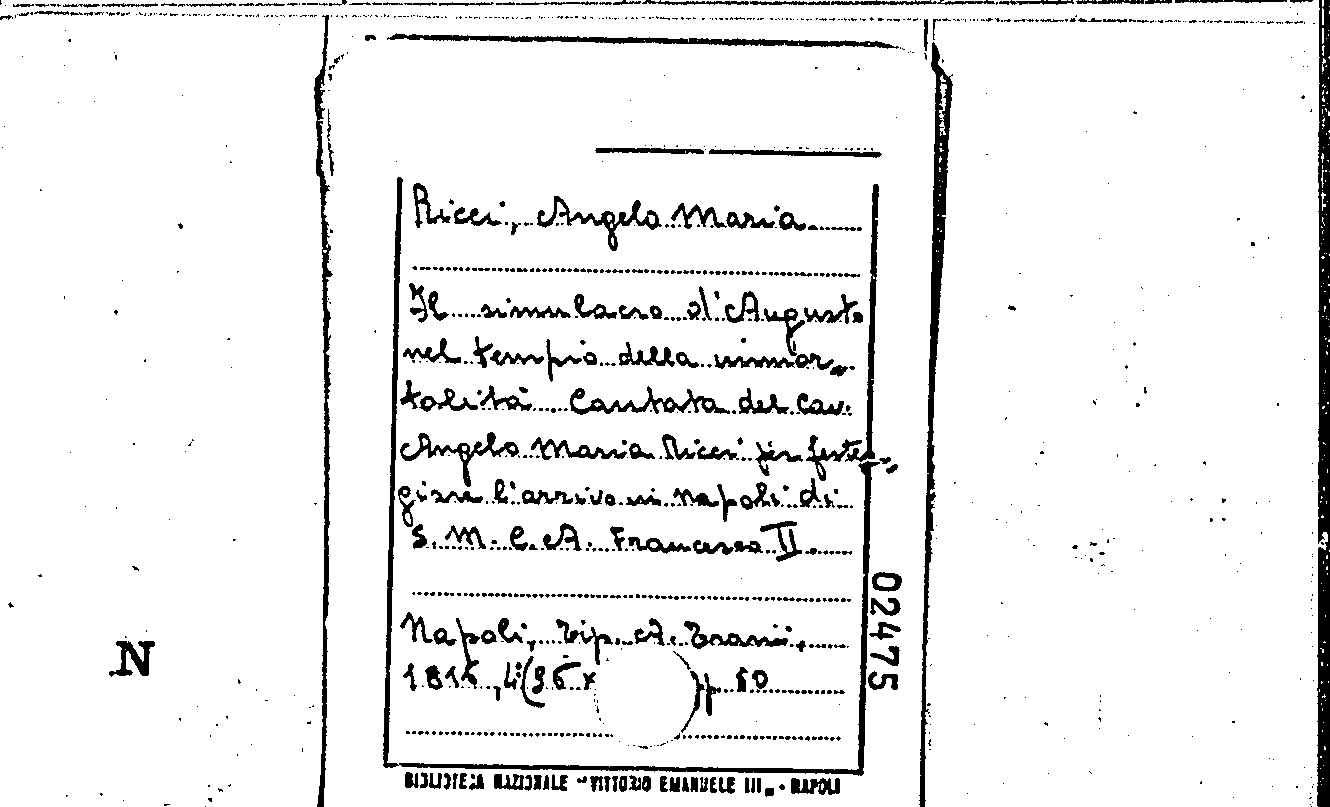 Ricci, Angelo Maria
Il simulacro d'Augusto
nel tempio della immor„
talità. Cantata del Cav.
Angelo Maria Ricci per feste„
giare l'arrivo in Napoli di
S. M. C. A. Francesco II.
Napoli, Tip. A. Trani,
p. 50
02475
N
BIBLIOTECA NAZIONALE "VITTORIO EMANUELE III„ - NAPOLI